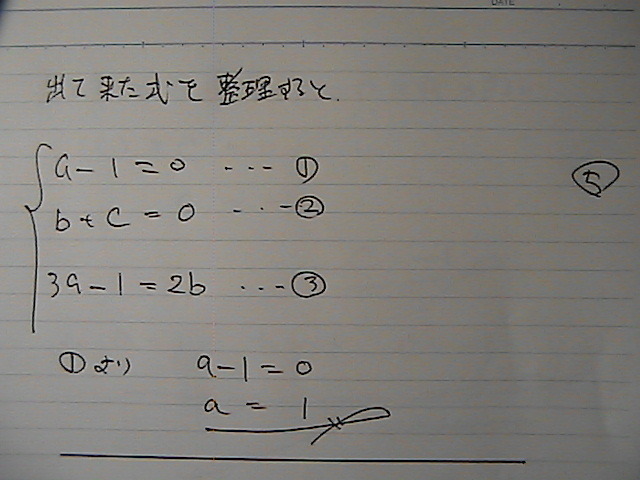 DATE
出て来た式を整理すると、
a-1=0 ---- ①
b+c=0 ---②
⑤
3a-1=2b ----③
①より a-1=0
a = 1